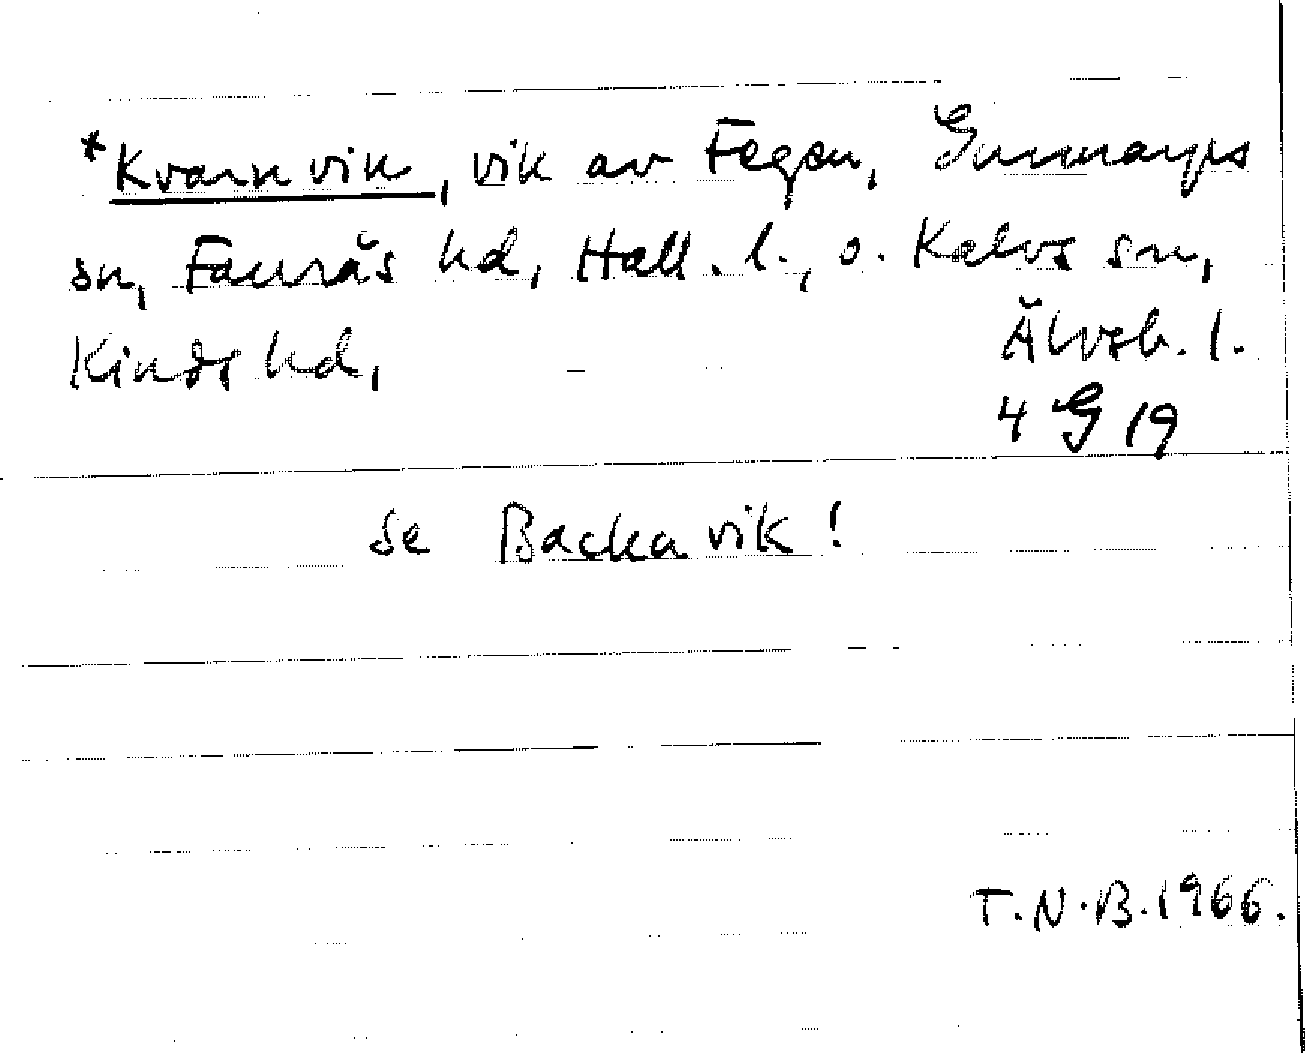 *Kvarnvik, vik av Fegen, Gunnarps
sn, Faurås hd, Hall. l., o. Kalvs sn,
Kinds hd, Älvsb. l.
4 G 19
se Backa vik!
T.N.B. 1966.